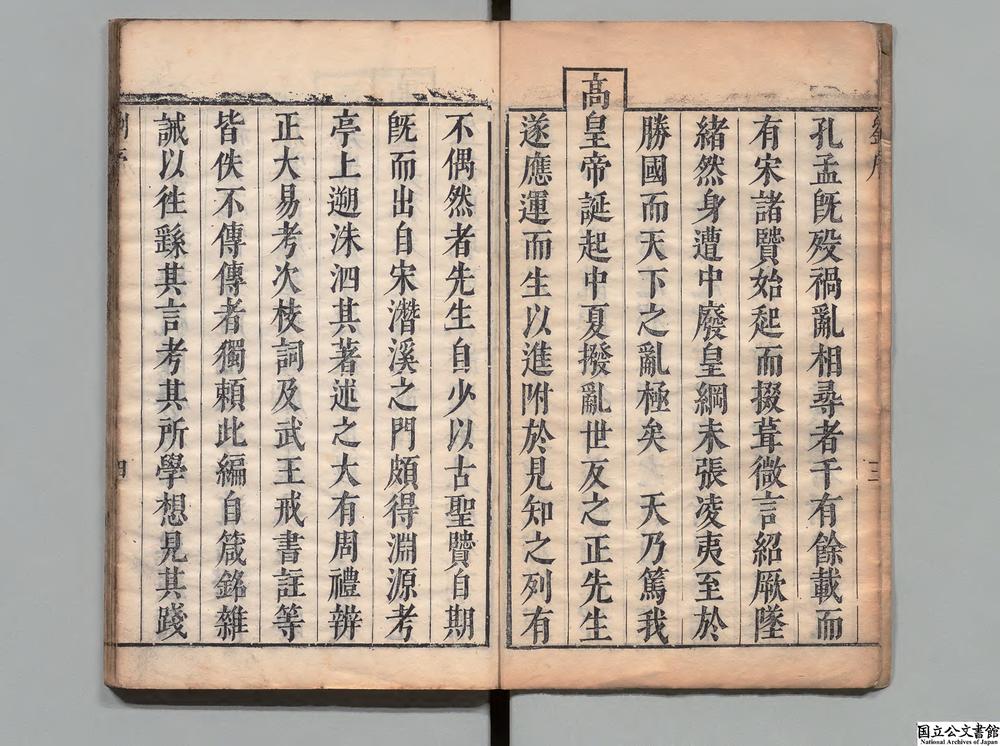 孔孟既歿禍亂相尋者千有餘載而
有宋諸賢始起而掇葺微言紹厥墜
緒然身遭中廢皇綱未張凌夷至於
勝國而天下之亂極矣　天乃篤我
高皇帝誕起中夏撥亂世反之正先生
遂應運而生以進附於見知之列有
三
不偶然者先生自少以古聖賢自期
旣而出自宋潛溪之門頗得淵源考
亭上遡洙泗其著述之大有周禮辨
正大易考次枝詞及武王戒書註等
皆佚不傳傳者獨賴此編自箴銘雜
誡以徃繇其言考其所學想見其踐
四
国立公文書館
National Archives of Japan